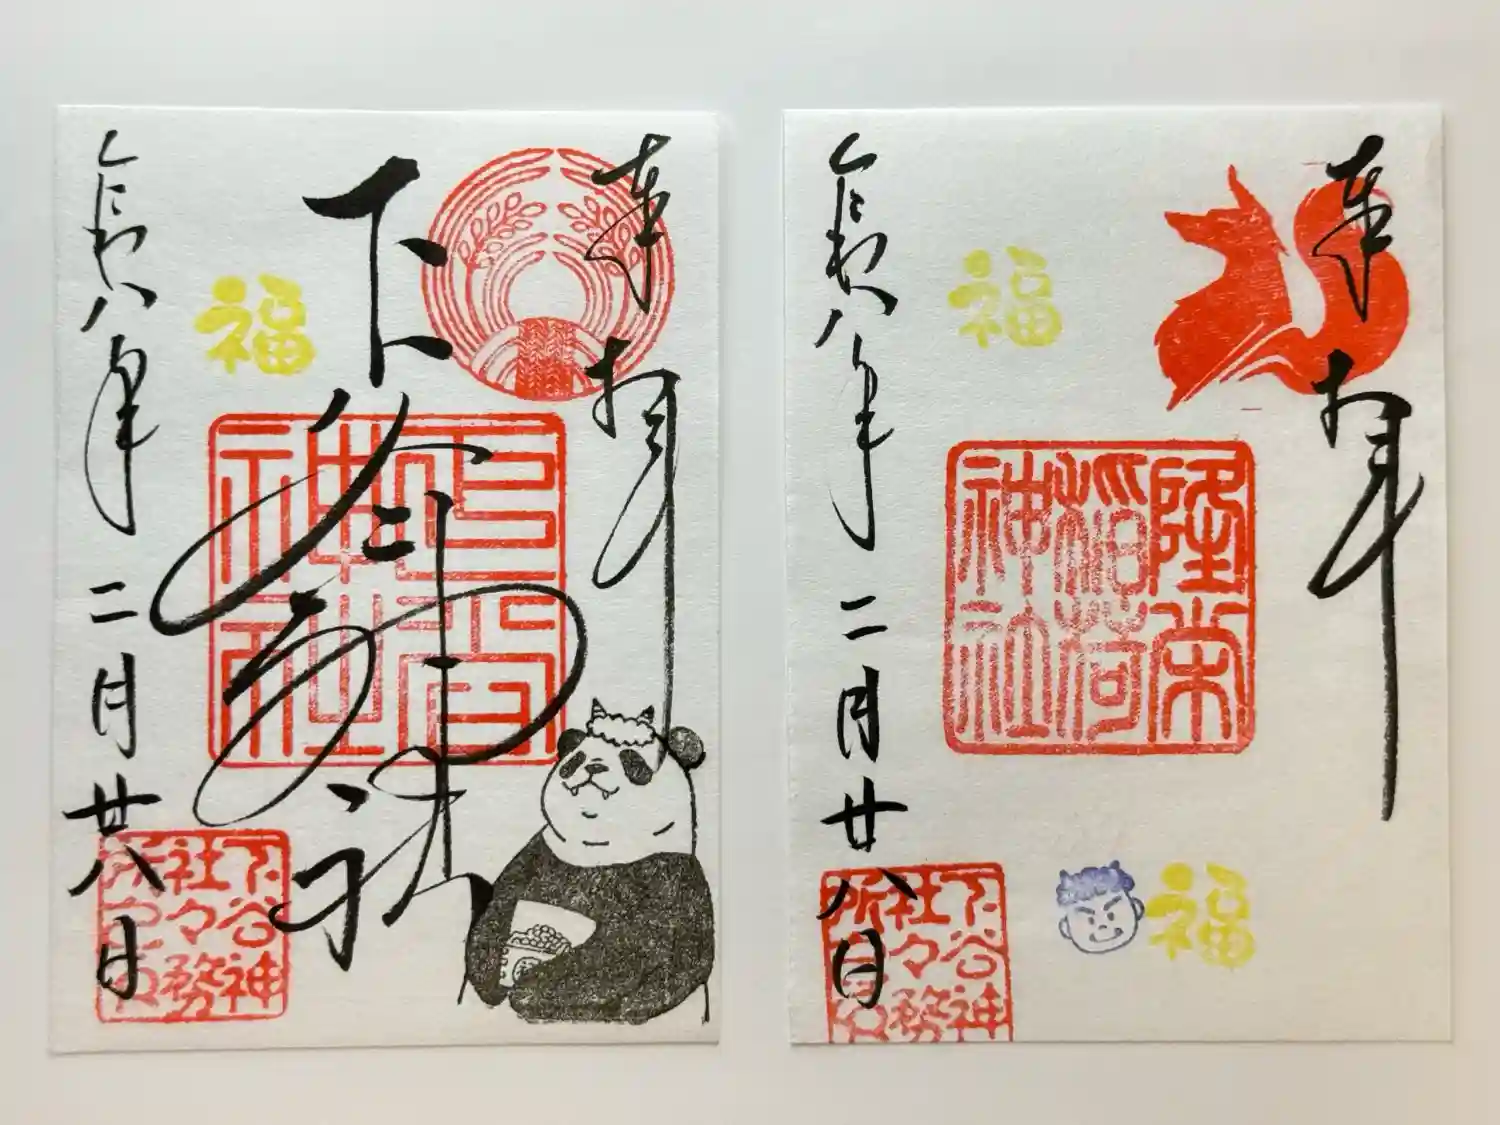 奉拝
下谷神社
下谷神社
福
令和八年二月廿八日
下谷神
社々務
所之印
奉拝
隆栄
稲荷
神社
福
福
令和八年二月廿八日
下谷神
社々務
所之印